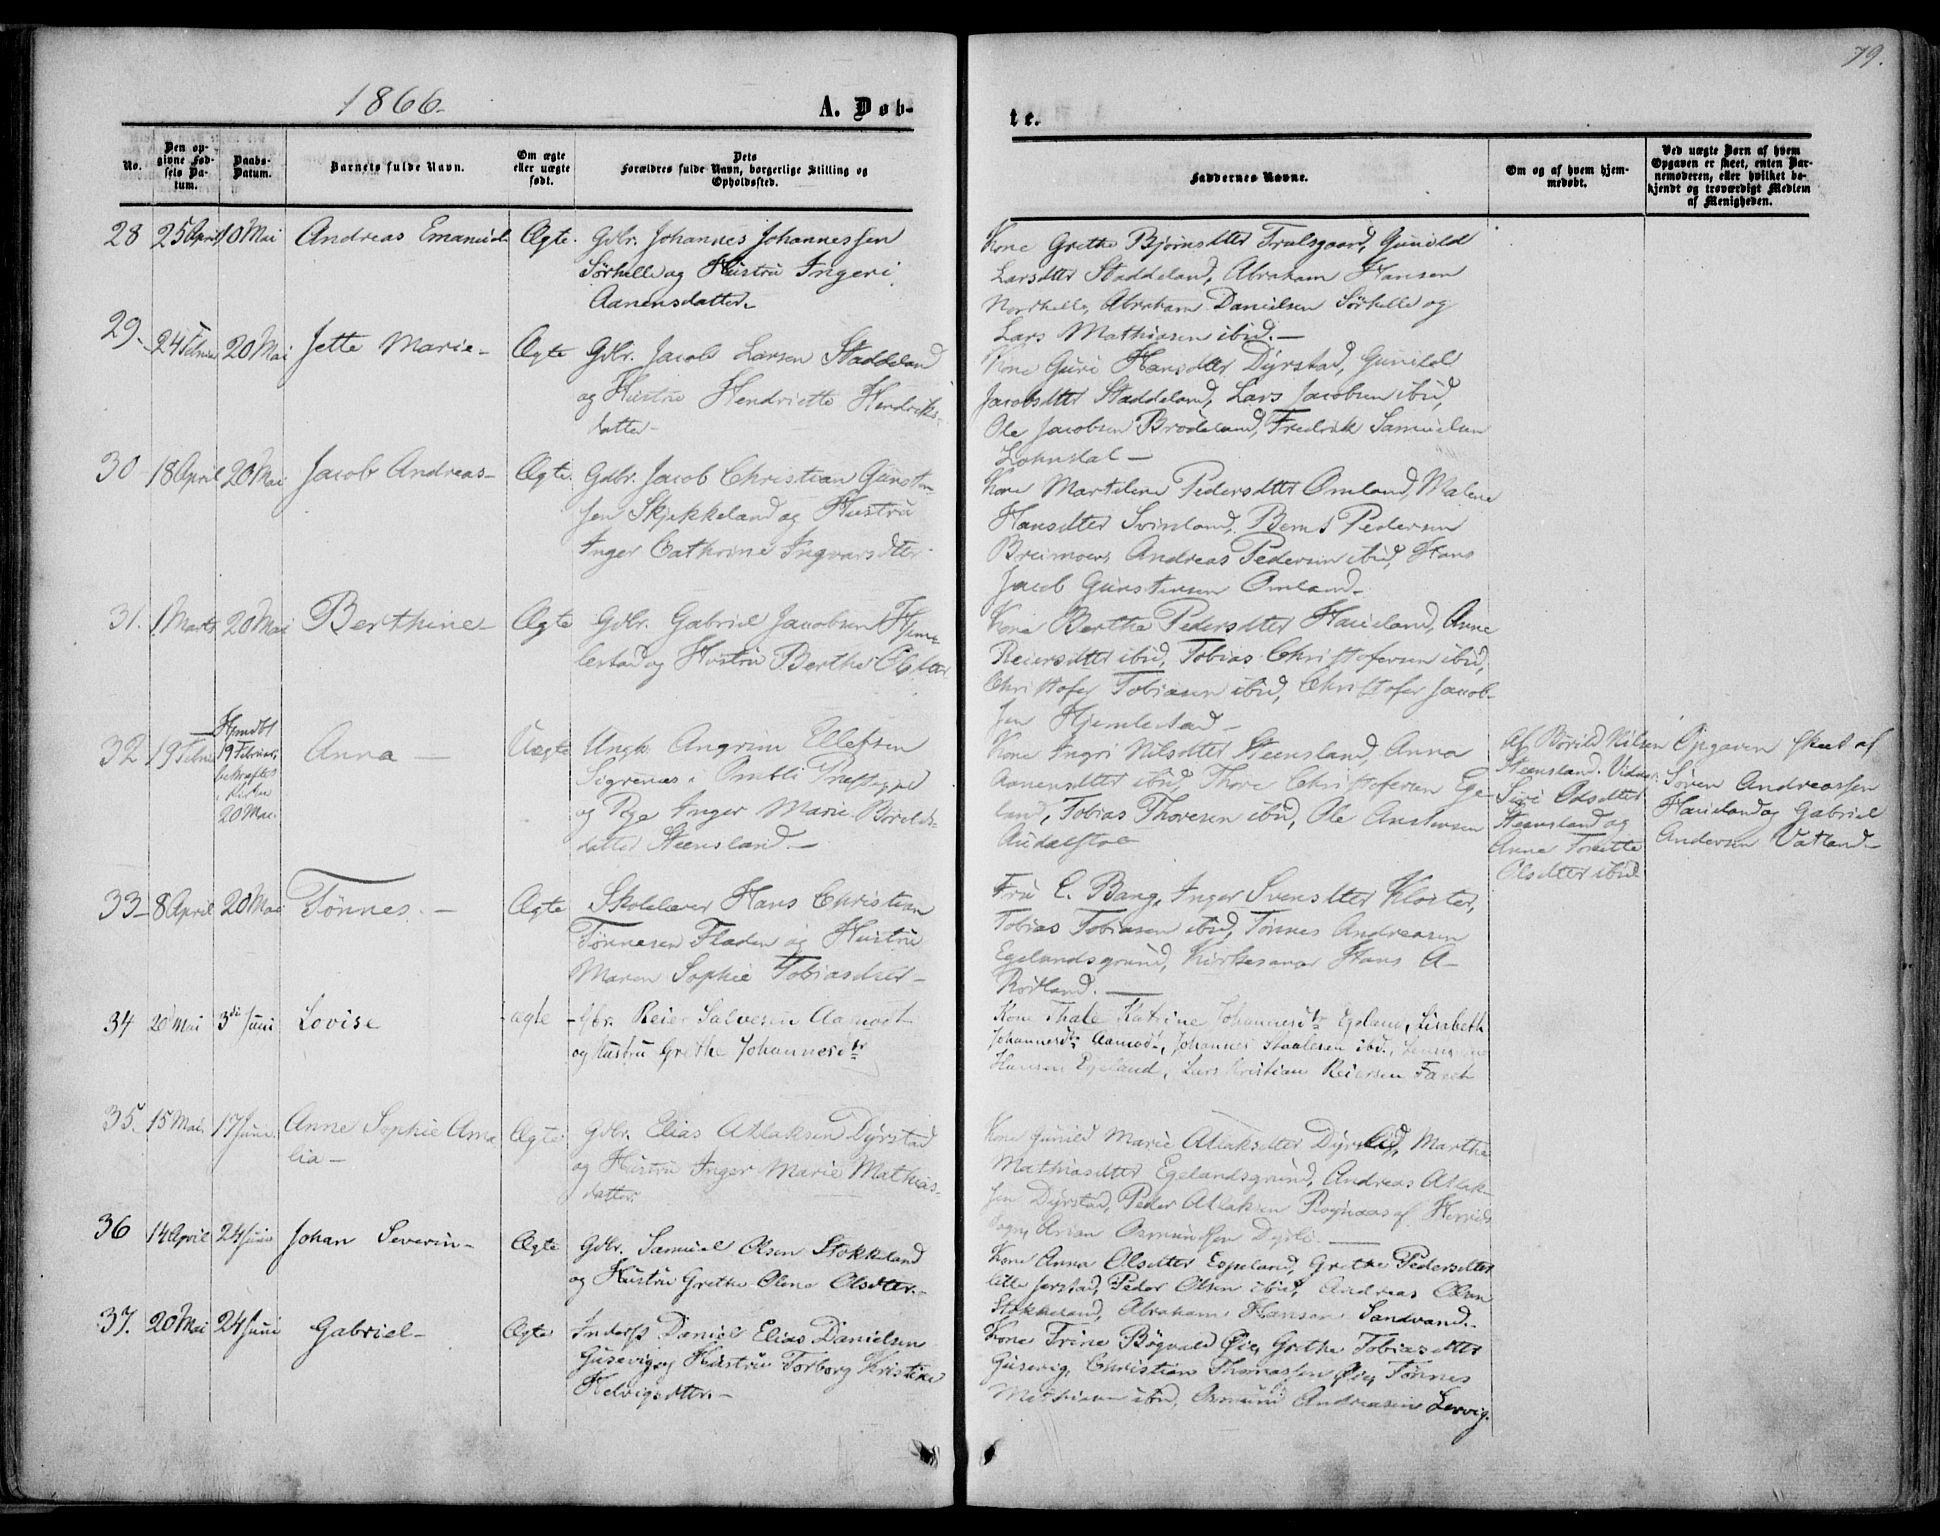 1866.
A. Døb-
te.
79.
No.
Den op-
givne Fød-
sels Da-
tum.
Daabs-
Datum.
Barnets fulde Navn.
Om ægte
eller uægte
født.
Dets
Forældres fulde Navn, borgerlige Stilling og
Opholdssted.
Faddernes Navne.
Om og af hvem hjem-
medøbt.
Ved uægte Børn af hvem
Opgaven er skeet, enten Bar-
nemoderen, eller hvilket be-
kjendt og troværdigt Medlem
af Menigheden.
28 25 April 10 Mai Andreas Emanuel Ægte. Gdbr. Johannes Johannessen
Sørhelle og Hustru Ingeri
Aanensdatter.
Kone Grethe Bjørnsdtter Trælsgaard, Gunild
Larsdtter Staddeland, Abraham Hansen
Nordhelle, Abraham Danielsen Sørhelle og
Lars Mathiasen ibid.
29. 24 Februar 20 Mai Jette Marie Ægte Gdbr. Jacob Larsen Staddeland
og Hustru Hendriette Hendriks-
datter
Kone Guri Hansdtter Dyrstad, Gunild
Jacobsdtter Staddeland, Lars Jacobsen ibid,
Ole Jacobsen Brodeland, Fredrik Samuelsen
30 18 April 20 Mai Jacob Andreas Ægte. Gdbr. Jacob Christian Gunsten-
sen Skjekkeland og Hustru
Inger Cathrine Ingvarsdtter
Kone Martiline Pedersdtter Omland, Malene
Hansdtter Svinland, Bernt Pedersen
Breimoen, Andreas Pedersen ibid, Hans
Jacob Gunstensen Omland
31. 1 Marts 20 Mai Berthine Ægte Gdbr. Gabriel Jacobsen Hjem-
lestad og Hustru Berthe
Kone Berthe Pedersdtter Haueland, Anne
Reiersdtter ibid, Tobias Christofersen ibid,
Christofer Tobiasen ibid, Christofer Jacob-
sen Hjemlestad
32 19 Februar Hjmdbt
19 Februar,
bekræftet
i Kirken
20 Mai. Anna Uægte Ungk. Angrim Ellefsen
Sigrenæs i Præstegjeld
og Pige Inger Marie Børilds-
datter Steensland.
Kone Ingri Nilsdtter Steensland, Anna
Aanensdtter ibid, Thore Christofersen Ege-
land, Tobias Thoresen ibid, Ole
Af Børild Nilsen
Steensland. Vidner:
Siri Adsdtter
Steensland og
Anne Tomitte
Olsdtter ibid
Opgaven skeet af
Søren Andreassen
Haueland og Gabriel
Andersen Vatland
33 8 April 20 Mai Tønnes. Ægte Skolelærer Hans Christian
Tønnesen Fladen og Hustru
Maren Sophie Tobiasdtter
Fru E. Bang, Inger Svensdtter Kloster,
Tobias Tobiasen ibid, Tønnes Andreasen
Egelandsgrund, Kirkesanger Hans A.
Rødland.
34 20 Mai 3di Juni Lovise ægte Gbr. Reier Salvesen Aamodt
og Hustru Grethe Johannesdtr
Kone Thale Katrine Johannesdtr Egeland, Lisabeth
Johannesdtr Aamodt, Johannes Staalesen ibid.,
Hansen Egeland, Lars Kristian Reiersen
35. 15 Mai. 17 Juni. Anne Sophie Ama-
lia Ægte Gdbr. Elias Atlaksen Dyrstad
og Hustru Inger Marie Mathias-
datter.
Kone Gunild Marie Atlaksdtter Dyrstad, Marthe
Mathiasdtter Egelandsgrund, Andreas Atlak-
sen Dyrstad, Peder Atlaksen af
Sogn, Osmundsen
36 14 April 24 Juni Johan Severin Ægte Gdbr. Samuel Olsen Stokkeland
og Hustru Grethe Olene Olsdtter.
Kone Anna Olsdtter Espeland, Grethe Pedersdtter
Peder Olsen ibid, Andreas Olsen
Stokkeland, Abraham Hansen Sandvand.
37. 20 Mai 24 Juni Gabriel Ægte Inderst Daniel Elias Danielsen
Gusevig og Hustru Torborg Kristine
Helvigsdtter.
Kone Trine Bøgvald Øie, Grethe Tobiasdtter
Gusevig, Christian Thomassen Øie, Tønnes
Mathiasen ibid, Osmund Andreasen Lervig.